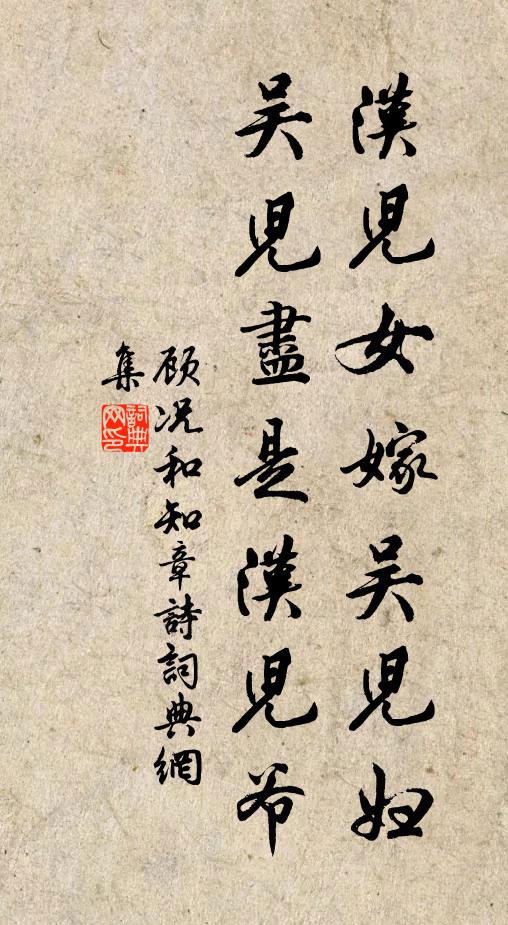 漢兒女嫁吳兒婦
吳兒盡是漢兒爷
顾况和知章詩詞典網
集
詞典
网印